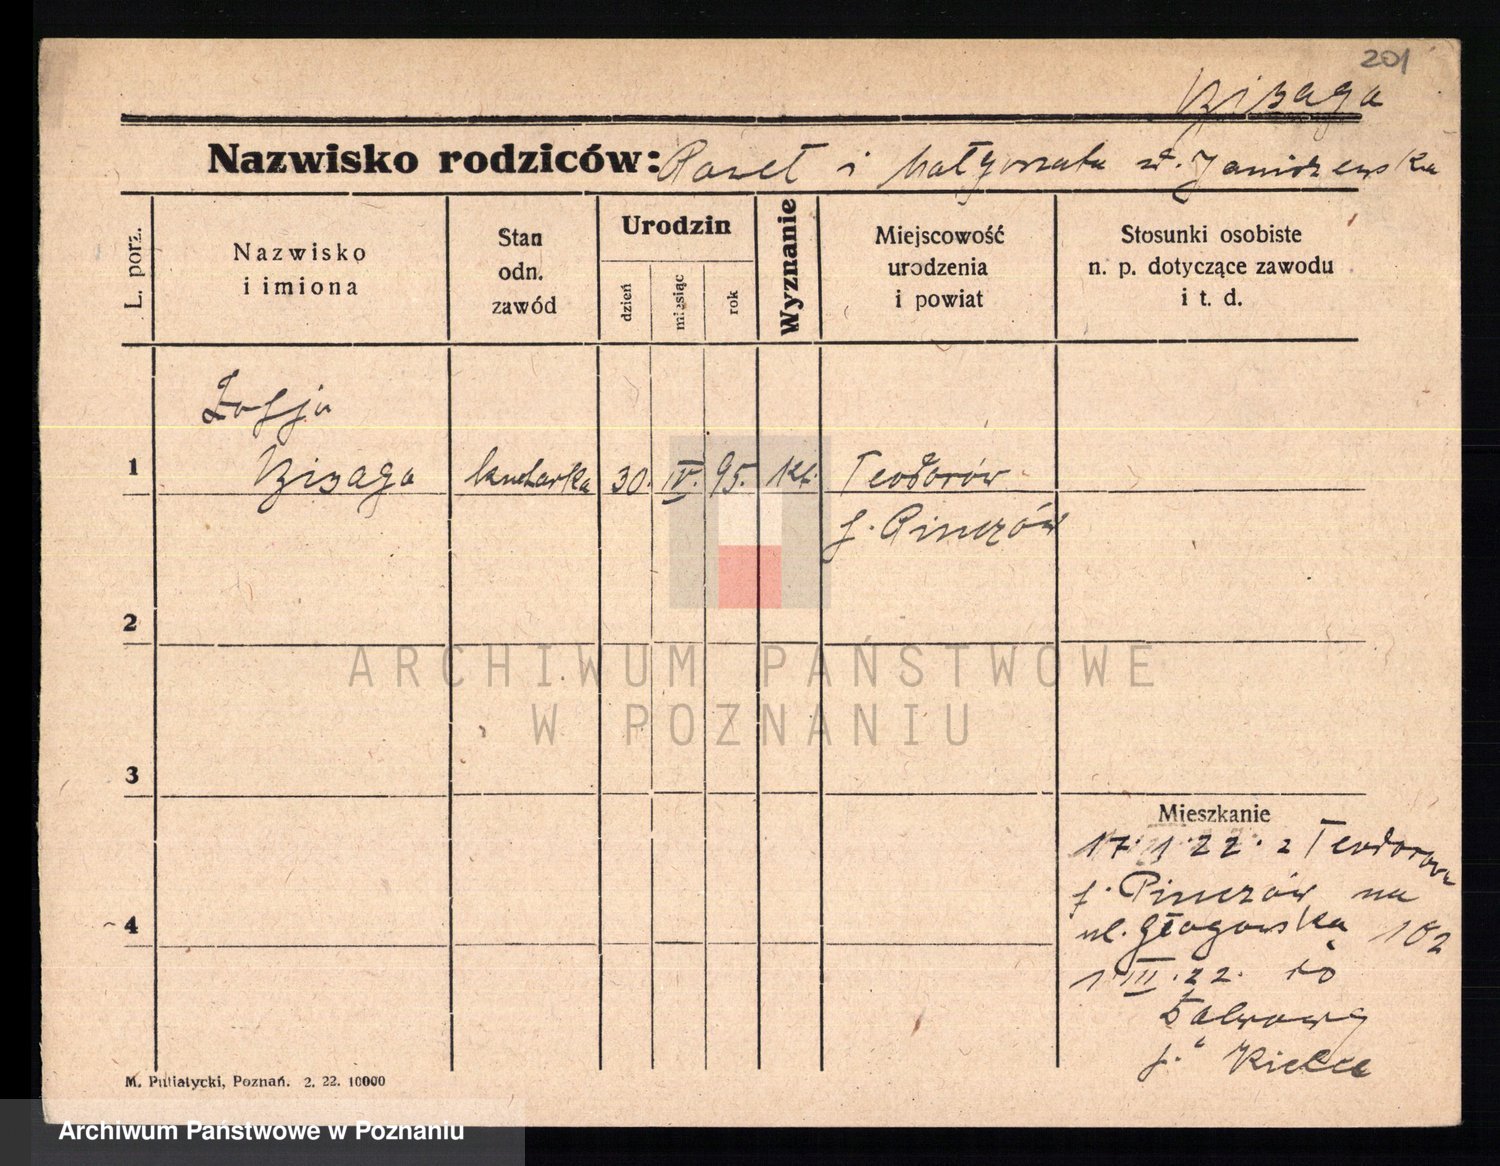 201
Bizaga
Nazwisko rodziców: Paweł i Małgorzata z d. Janiszewska
L. porz.
Nazwisko
i imiona
Stan
odn.
zawód
Urodzin
dzień
miesiąc
rok
Wyznanie
Miejscowość
urodzenia
i powiat
Stosunki osobiste
n. p. dotyczące zawodu
i t. d.
Zofja
1 Bizaga kucharka 30. IV. 95. kt. Teodorów
p. Pinczów
2
ARCHIWUM PAŃSTWOWE
W POZNANIU
3
Mieszkanie
17. 1. 22. z Teodorowa
p. Pinczów na
4
ul. Głogowska 102
1. III. 22. do
p. Kielce
M. Putiatycki, Poznań. 2. 22. 10000
Archiwum Państwowe w Poznaniu